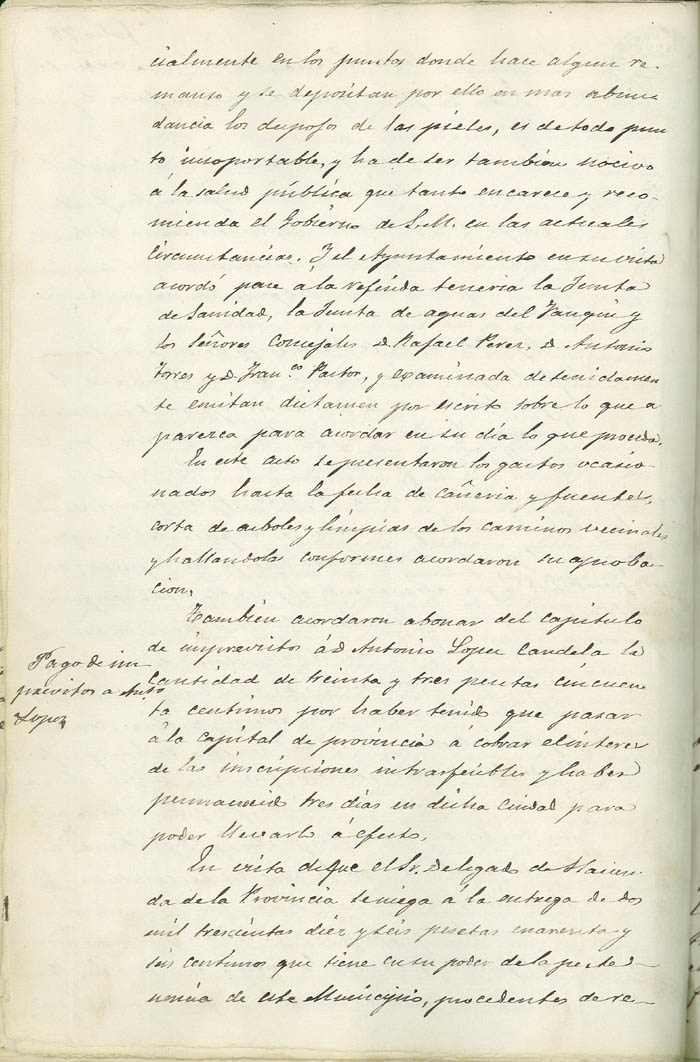 cialmente en los puntos donde hace algun re-
manso y se depositan por ello en mas abun
dancia los despojos de las pieles, es de todo pun
to insoportable, y ha de ser tambien nocivo
á la salud pública que tanto encarece y reco-
mienda el Gobierno de S. M. en las actuales
circunstancias. Y el Ayuntamiento en su vista
acordó pase á la referida teneria la Junta
de Sanidad, la Junta de aguas del y
los Señores Concejales D. Rafael Perez, D. Antonio
Torres y D. Fran.co Pastor, y examinada detenidamen
te emitan dictamen por escrito sobre lo que a
parezca para acordar en su dia lo que proceda.
En este acto se presentaron los gastos ocasio-
nados hasta la fecha de cañeria y fuentes,
corta de arboles y limpias de los caminos vecinales
y hallandola conformes acordaron su aproba-
cion.
Tambien acordaron abonar del capitulo
de imprevistos á D. Antonio Lopez Candela la
cantidad de treinta y tres pesetas cincuen
ta centimos por haber tenido que pasar
á la capital de provincia á cobrar el interes
de las inscripciones intrasferibles y haber
permanecido tres dias en dicha ciudad para
poder llevarlo á efecto.
Pago de im
previstos a Anto
Lopez
En vista de que el Sr. Delegado de Hacien-
da de la Provincia se niega á la entrega de dos
mil trescientas diez y seis pesetas cuarenta y
seis centimos que tiene en su poder de la perte-
nencia de este Municipio, procedentes de re-